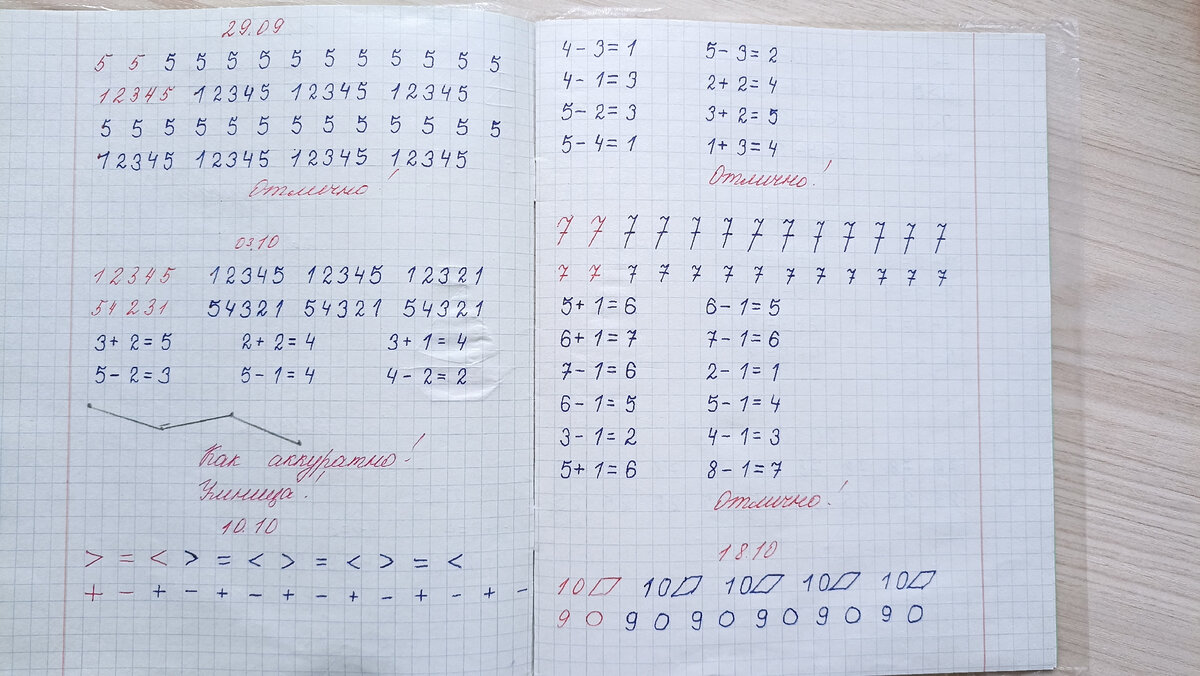 29.09
5 5 5 5 5 5 5 5 5 5 5 5 5
12345 12345 12345 12345
5 5 5 5 5 5 5 5 5 5 5 5 5
12345 12345 12345 12345
Отлично!
03.10
12345 12345 12345 12321
54231 54321 54321 54321
3+2=5 2+2=4 3+1=4
5-2=3 5-1=4 4-2=2
Как аккуратно!
Умница!
10.10
> = < > = < > = < > = <
+ - + - + - + - + - + - + -
4-3=1 5-3=2
4-1=3 2+2=4
5-2=3 3+2=5
5-4=1 1+3=4
Отлично!
7 7 7 7 7 7 7 7 7 7 7 7 7
7 7 7 7 7 7 7 7 7 7 7 7 7
5+1=6 6-1=5
6+1=7 7-1=6
7-1=6 2-1=1
6-1=5 5-1=4
3-1=2 4-1=3
5+1=6 8-1=7
Отлично!
18.10
10▱ 10▱ 10▱ 10▱ 10▱
9 0 9 0 9 0 9 0 9 0 9 0